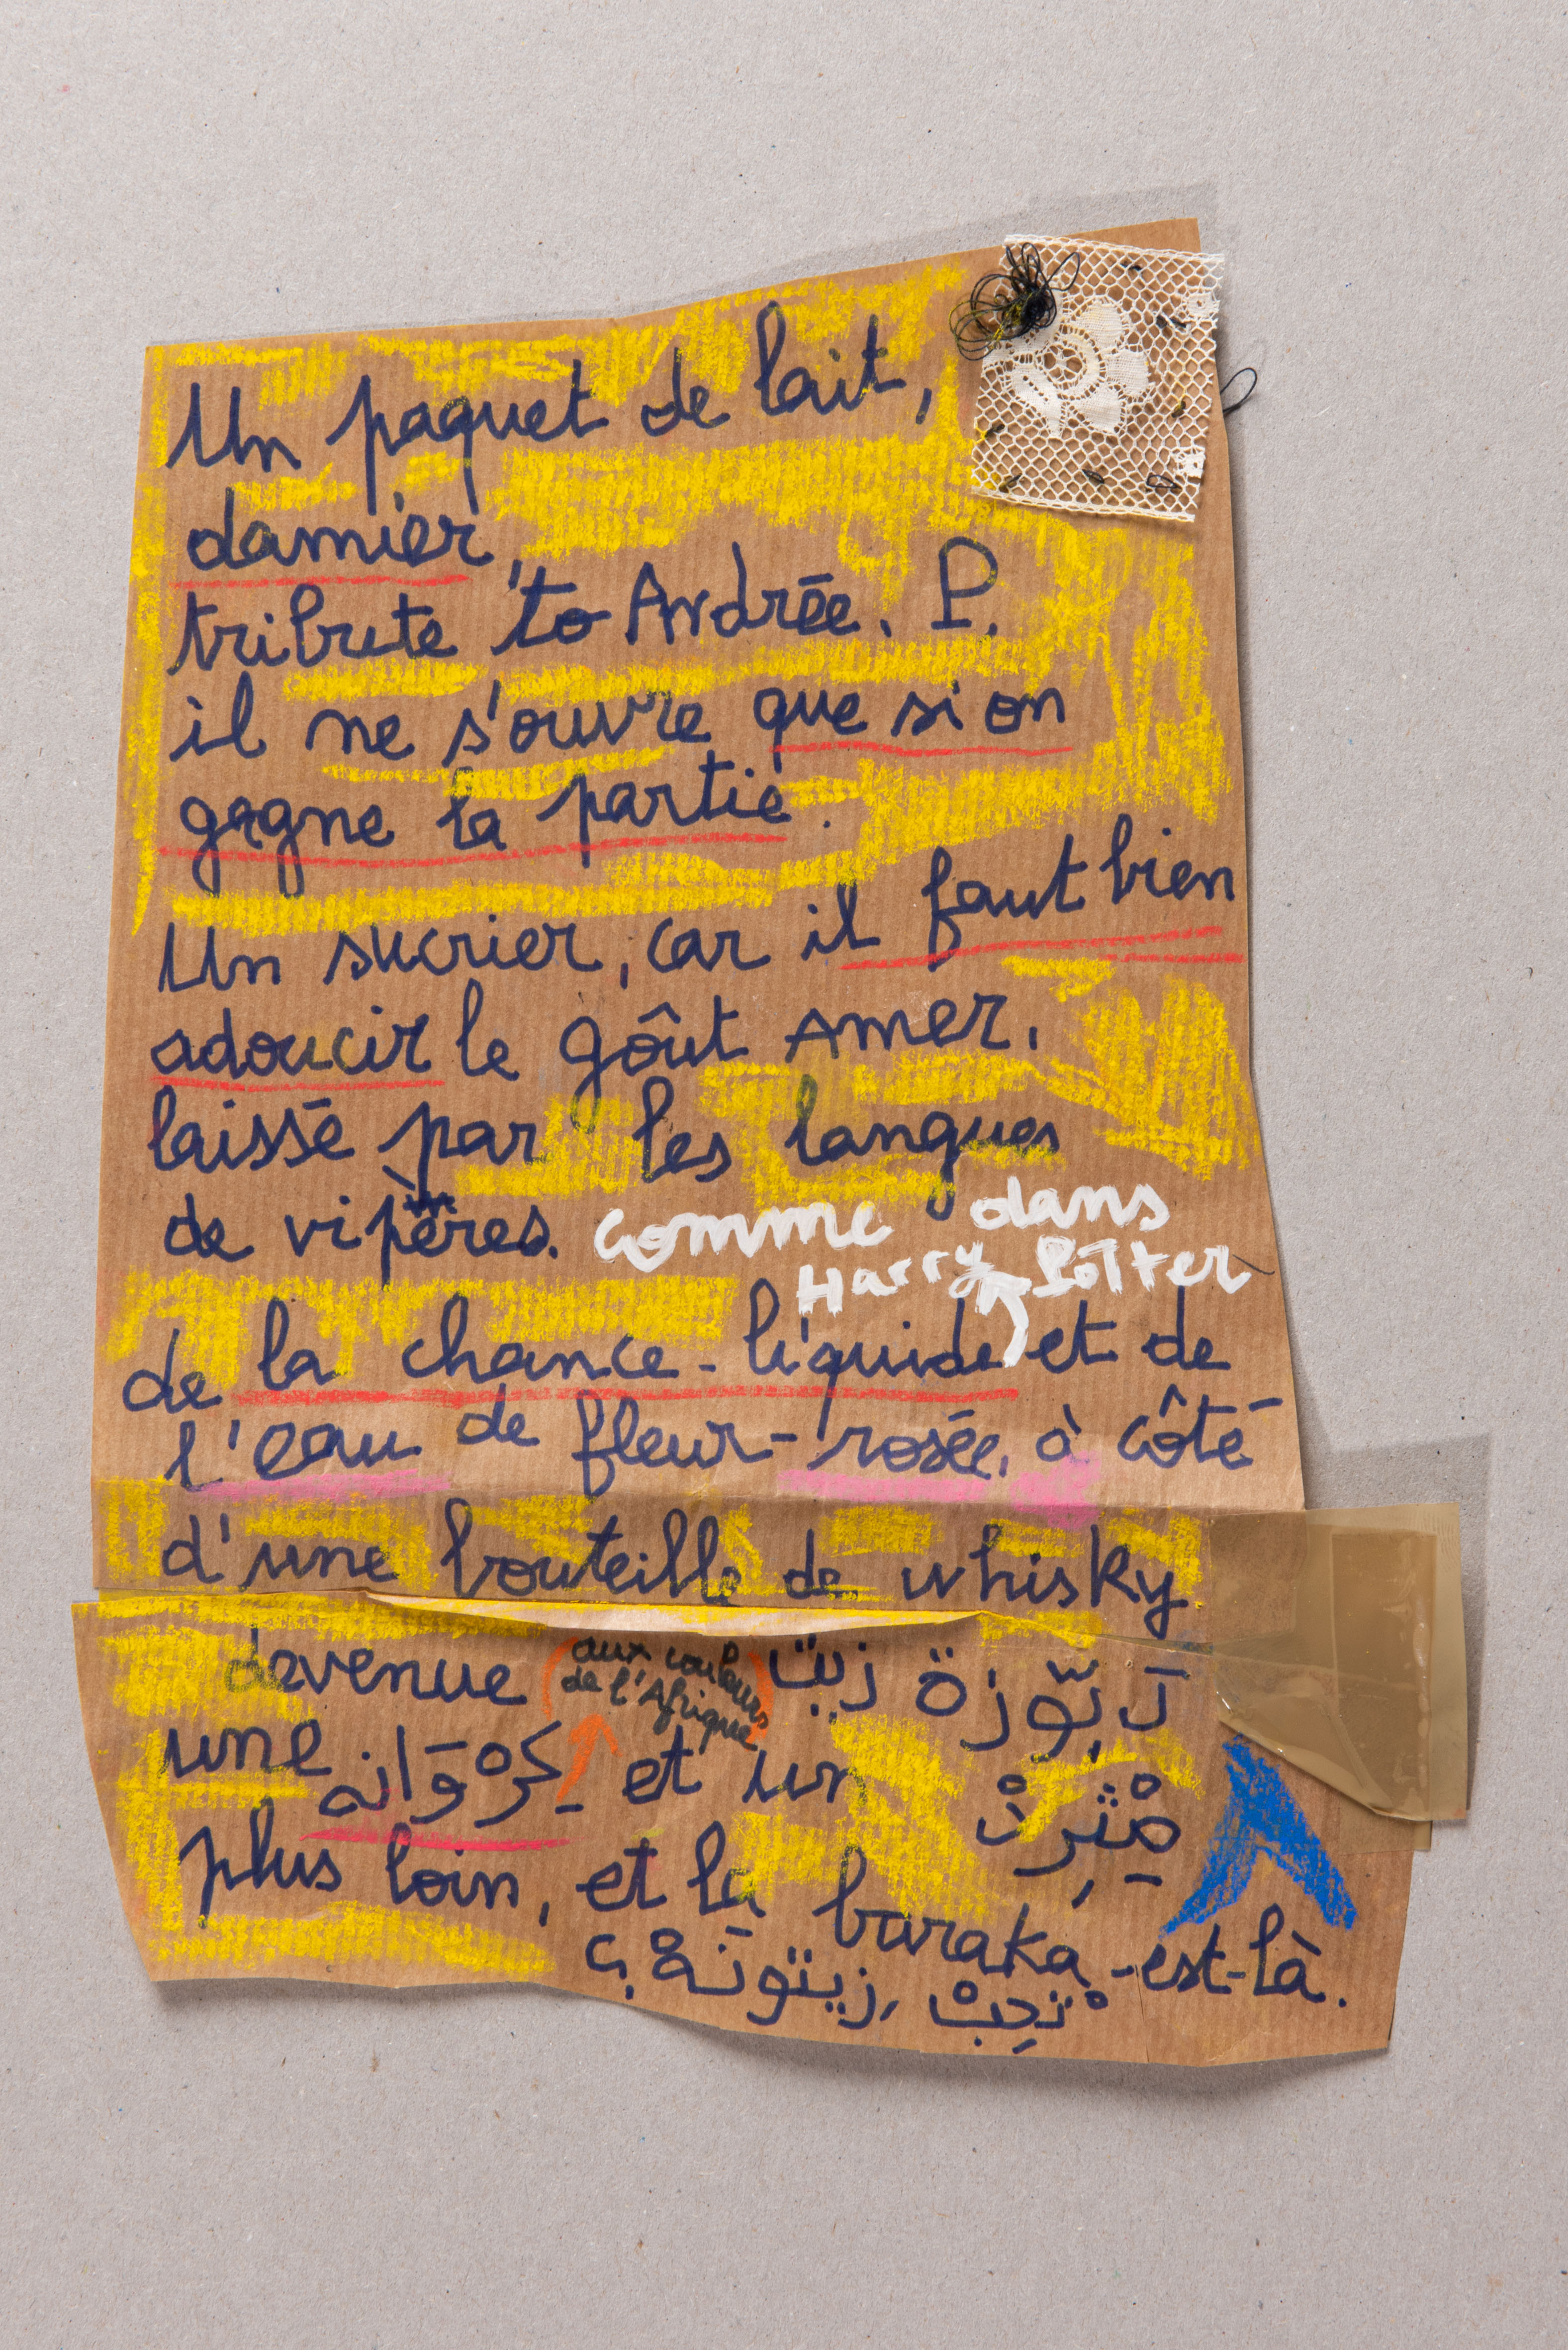 Un paquet de lait,
damier,
tribute to Andrée. P.
il ne s'ouvre que si on
gagne la partie.
Un sucrier, car il faut bien
adoucir le goût amer.
laissé par les langues
de vipères. comme dans
Harry Potter
de la chance-liquide et de
l'eau de fleur-rosée, à côté
d'une bouteille de whisky
devenue دَبّوزة زيت
aux couleurs
de l'Afrique
une كِرْوَانه et un مِثْرِدْ
plus loin, et la baraka-est-là.
تحِبْ زيتونَةْ ؟